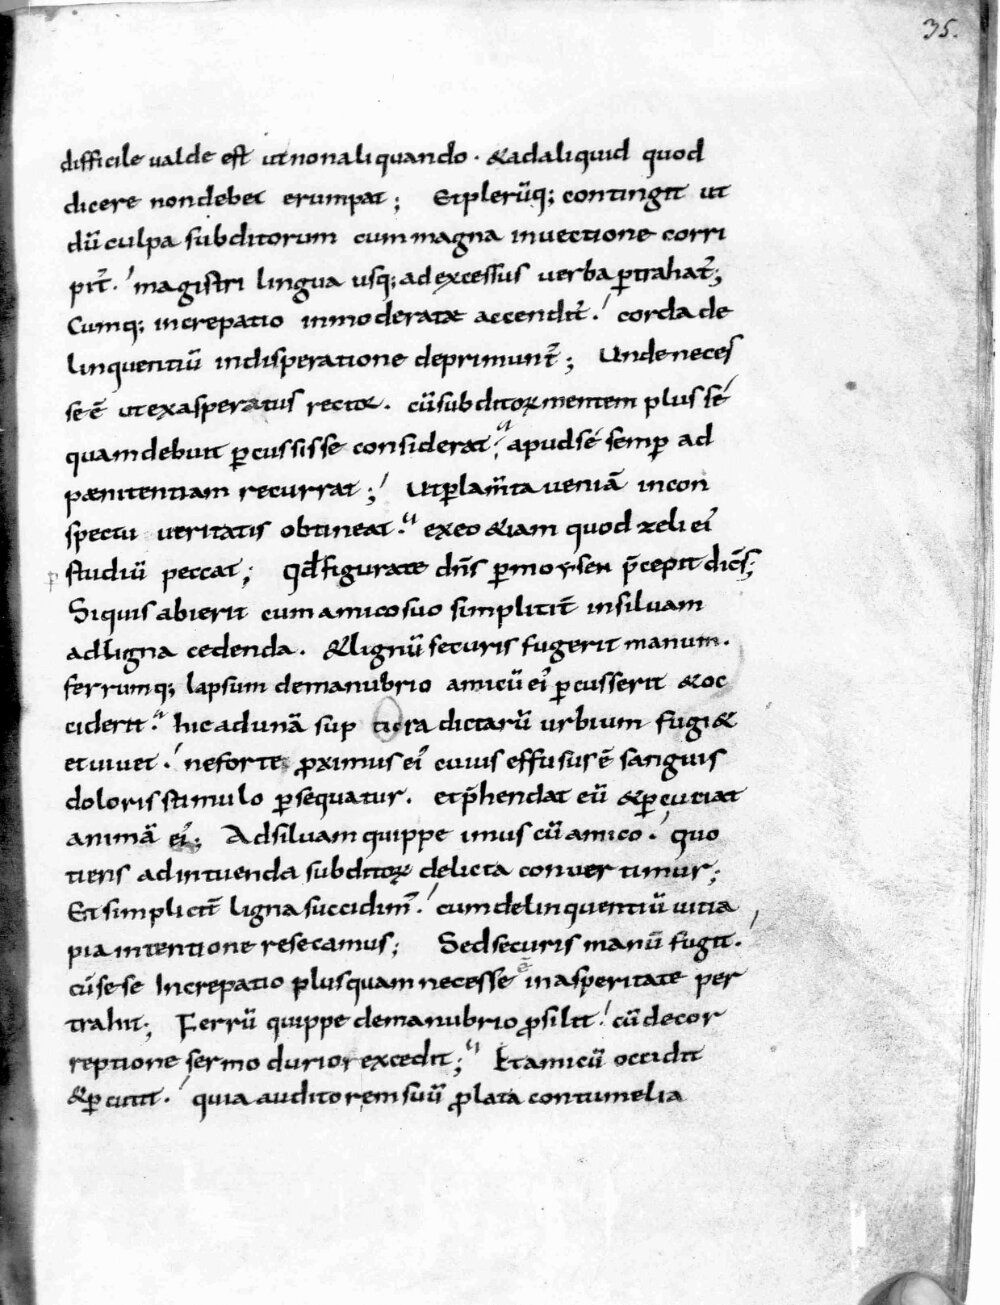 35.
difficile valde est ut non aliquando · & ad aliquid quod
dicere non debet erumpat ; Et plerūq; contingit ut
dū culpa subditorum cum magna invectione corri
pit̄ . magistri lingua usq; ad excessus verba ꝑtrahat̄ ;
Cumq; increpatio inmoderatae accendit̄ . corda de
linquentiū in disperatione deprimunt̄ ; Unde neces
se ē ut exasperatus rector . cū subditoꝝ mentem plus sé
quam debuit ꝑcussisse considerat ; apud sé semꝑ ad
paenitentiam recurrat ; Ut ꝑ lam̄ta veniā in con
spectu veritatis obtineat . ex eo &iam quod zeli ei'
studiū peccat ; Qđ figurate dn̄s ꝑ moysen p̄cepit dicēs ;
Si quis abierit cum amico suo simplicit̄ in silvam
ad ligna cedenda . & lignū securis fugerit manum .
ferrumq; lapsum de manubrio amicū ei' ꝑcusserit & oc
ciderit . hic ad unā sup tiora dictarū urbium fugi&
et vivet . ne forte ꝓximus ei' cuius effusus ē sanguis
doloris stimulo ꝑsequatur . et p̄hendat eū & ꝑcutiat
animā ei' ; Ad silvam quippe imus cū amico . quo
tiens ad intuenda subditoꝝ delicta convertimur ;
Et simplicit̄ ligna succidim' . cum delinquentiū vitia
pia intentione resecamus ; Sed securis manū fugit .
cū sese increpatio plus quam necesse ē in asperitate per
trahit ; Ferrū quippe de manubrio ꝓsilit . cū de cor
reptione sermo durior excedit ; Et amicū occidit
& ꝑcutit . quia auditorem suū ꝓlata contumelia